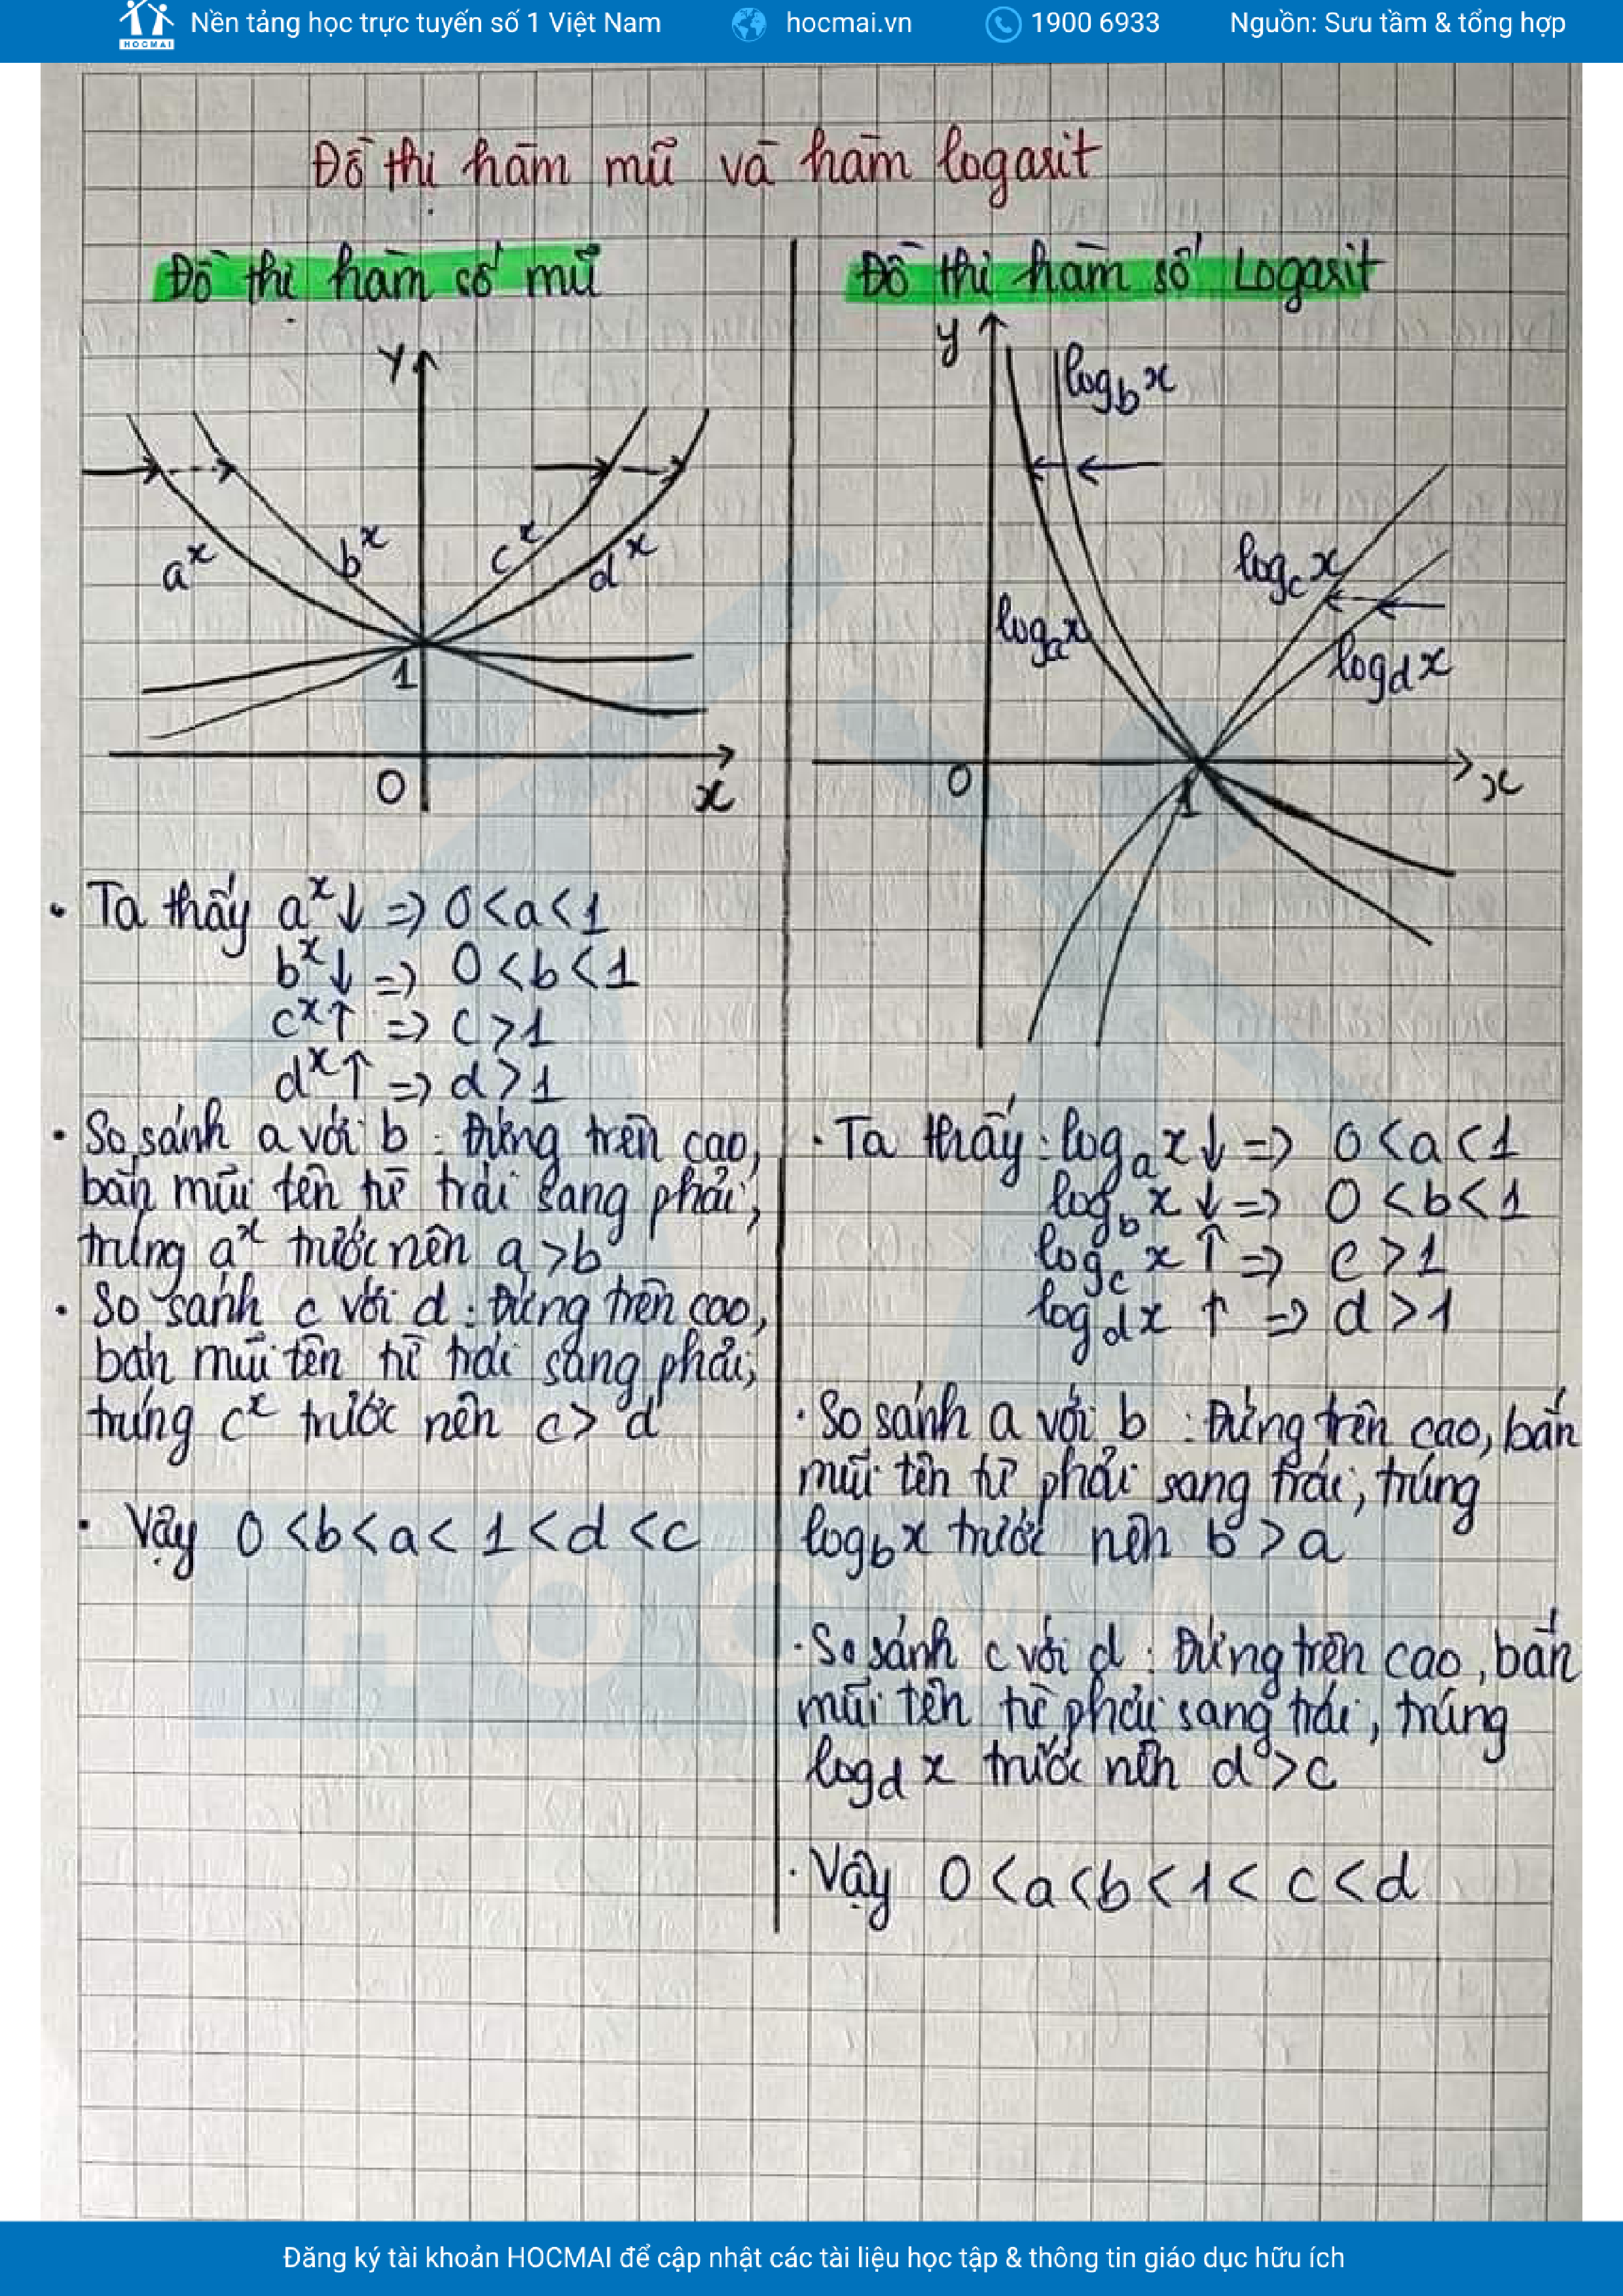 HOCMAI
Nền tảng học trực tuyến số 1 Việt Nam
hocmai.vn
1900 6933
Nguồn: Sưu tầm & tổng hợp
Đồ thị hàm mũ và hàm logarit
Đồ thị hàm số mũ
y
a^x
b^x
c^x
d^x
1
0
x
• Ta thấy a^x↓ => 0<a<1
b^x↓ => 0<b<1
c^x↑ => c>1
d^x↑ => d>1
• So sánh a với b : Đứng trên cao,
bắn mũi tên từ trái sang phải,
trúng a^x trước nên a>b
• So sánh c với d : Đứng trên cao,
bắn mũi tên từ trái sang phải,
trúng c^x trước nên c>d
• Vậy 0<b<a<1<d<c
Đồ thị hàm số Logarit
y
log_b x
log_c x
log_a x
log_d x
0
1
x
• Ta thấy : log_a x↓ => 0<a<1
log_b x↓ => 0<b<1
log_c x↑ => c>1
log_d x↑ => d>1
• So sánh a với b : Đứng trên cao, bắn
mũi tên từ phải sang trái, trúng
log_b x trước nên b>a
• So sánh c với d : Đứng trên cao, bắn
mũi tên từ phải sang trái, trúng
log_d x trước nên d>c
• Vậy 0<a<b<1<c<d
HOCMAI
Đăng ký tài khoản HOCMAI để cập nhật các tài liệu học tập & thông tin giáo dục hữu ích